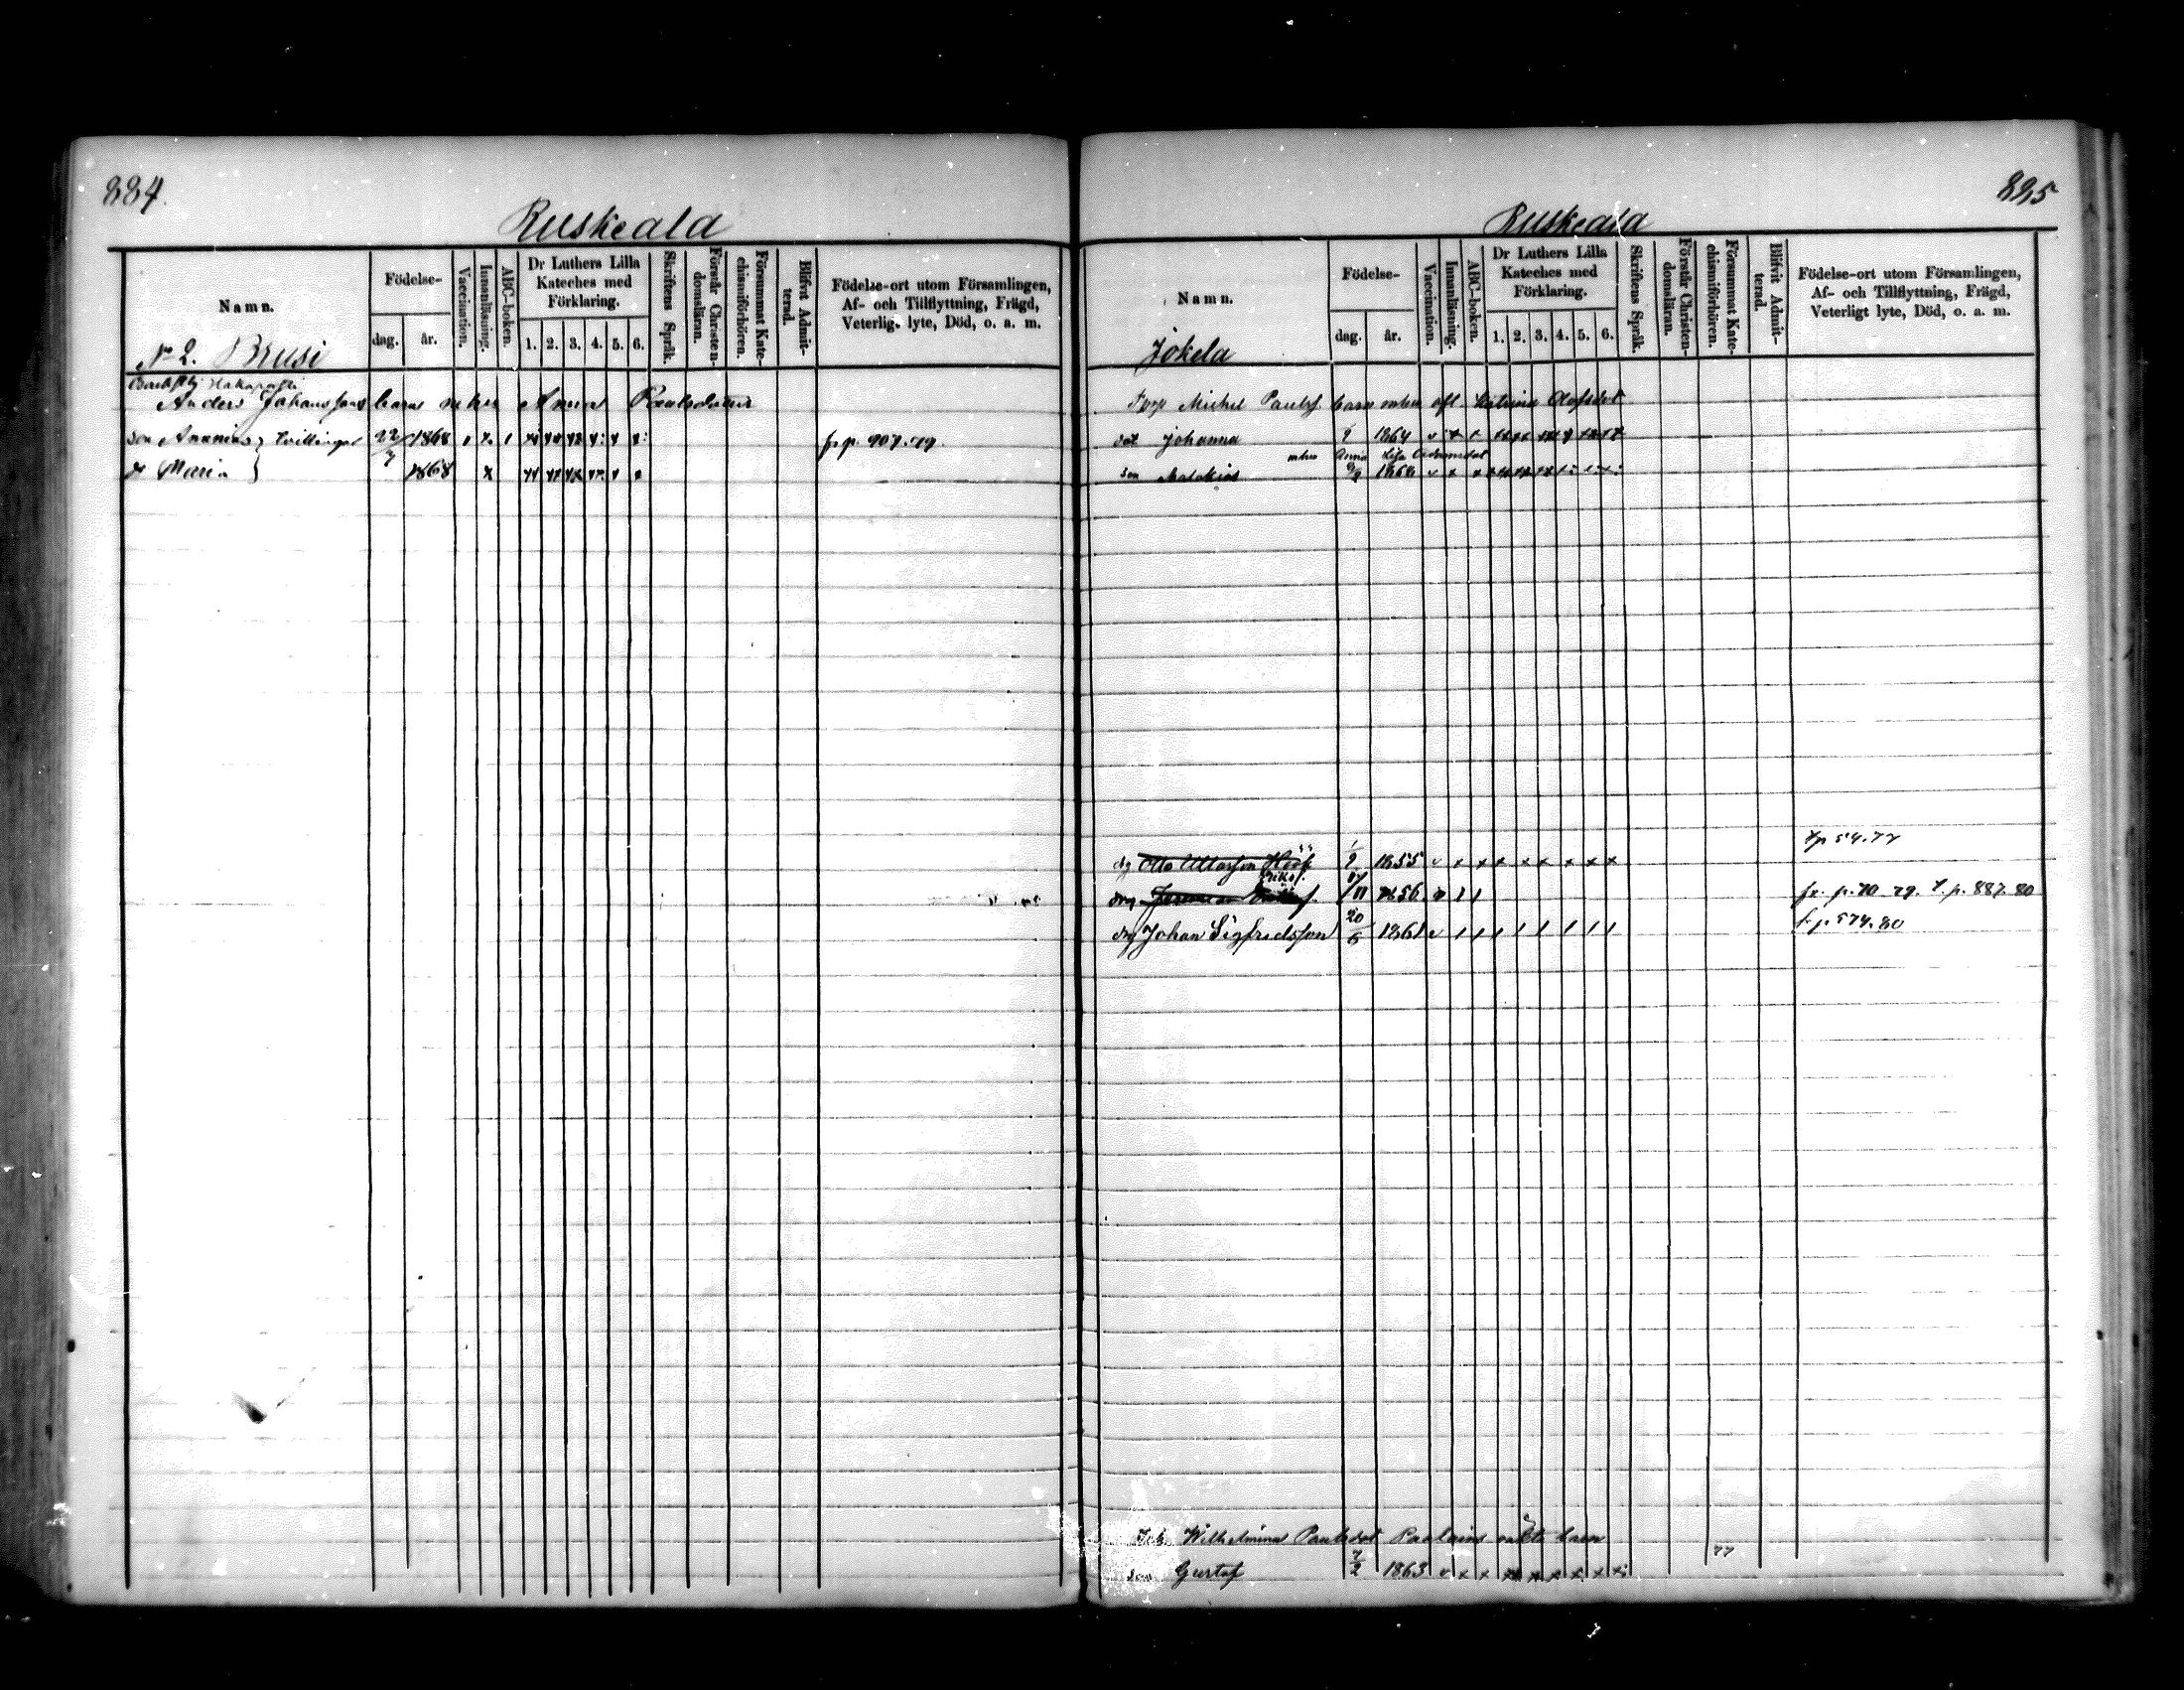 884.
Ruskeala
Namn.
Födelse-
dag.
år.
Vaccination.
Innanläsning.
ABC-boken.
Dr Luthers Lilla
Kateches med
Förklaring.
1. 2. 3. 4. 5. 6.
Skriftens Språk.
Förstår Christen-
domsläran.
Försummat Kate-
chismiförhören.
Blifvit Admit-
terad.
Födelse-ort utom Församlingen,
Af- och Tillflyttning, Frägd,
Veterlig. lyte, Död, o. a. m.
No 2. Brusi
Anders Johanssons barn m hu Anna Paulsdotter
son Ananias } tvillingar 22/7 1868 fr p. 907.79.
Maria } 1868
885
Ruskeala
Namn.
Födelse-
dag.
år.
Vaccination.
Innanläsning.
ABC-boken.
Dr Luthers Lilla
Kateches med
Förklaring.
1. 2. 3. 4. 5. 6.
Skriftens Språk.
Förstår Christen-
domsläran.
Försummat Kate-
chismiförhören.
Blifvit Admit-
terad.
Födelse-ort utom Församlingen,
Af- och Tillflyttning, Frägd,
Veterligt lyte, Död, o. a. m.
Jokela
Michel Paulsf barn m hu afl. Katrina Olofsdot
dot Johanna 1864
m hu Anna Lisa
son Malakias 1868
drg Otto Ottosson Höök 1/2 1855 t p 54.77
drg Jeremias Eriksf. 1856 fr. p. 70 79. t. p. 887. 80
drg Johan Sigfridsson 20/6 1861 fr p 574. 80
Wilhelmina Paulsdot oäkta barn
77
son Gustaf 7/2 1863